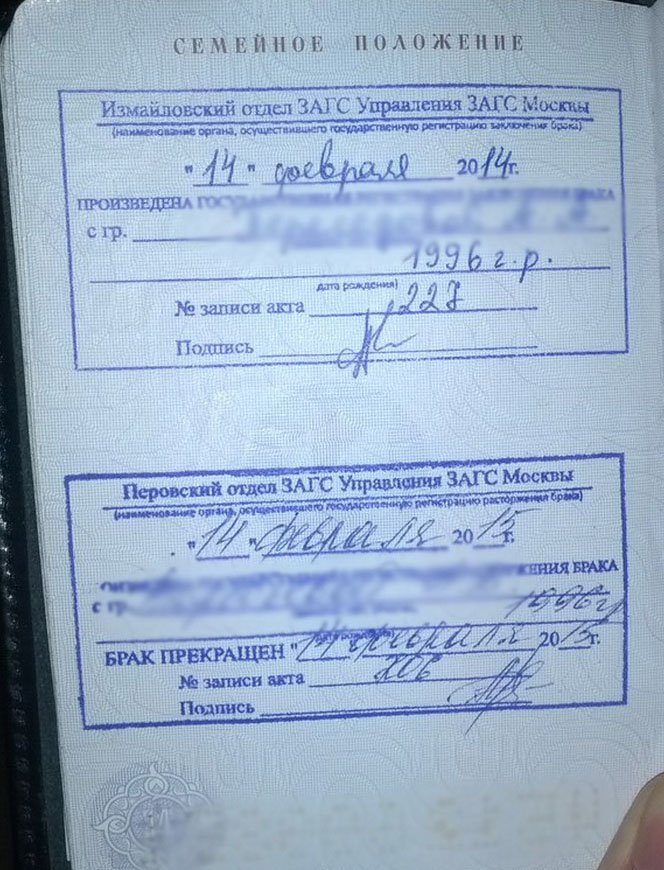 СЕМЕЙНОЕ ПОЛОЖЕНИЕ
Измайловский отдел ЗАГС Управления ЗАГС Москвы
(наименование органа, осуществившего государственную регистрацию заключения брака)
"14" февраля 2014г.
ПРОИЗВЕДЕНА ГОСУДАРСТВЕННАЯ РЕГИСТРАЦИЯ БРАКА
с гр.
1996 г. р.
дата рождения)
№ записи акта 227
Подпись
Перовский отдел ЗАГС Управления ЗАГС Москвы
(наименование органа, осуществившего государственную регистрацию расторжения брака)
"14" февраля 2015г.
БРАКА
с гр. 1996г
БРАК ПРЕКРАЩЕН "14 февраля 2015г.
№ записи акта
Подпись